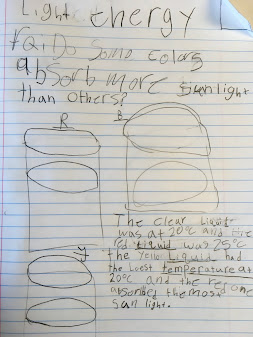 Light Energy
Q: Do Some colors
absorb more sunlight
than others?
R
B
The clear liquid
was at 20°C and the
red liquid was 25°C
y the yellow Liquid had
the Loest temperature at
20°C and the red one
absorbed the most
sun light.